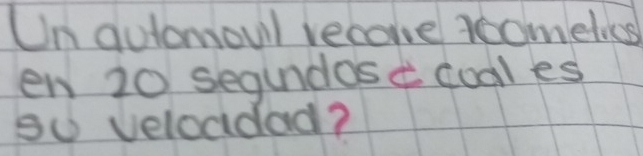 Un automovil recorre 100 metros
en 20 segundos ¿ cual es
su velocidad?